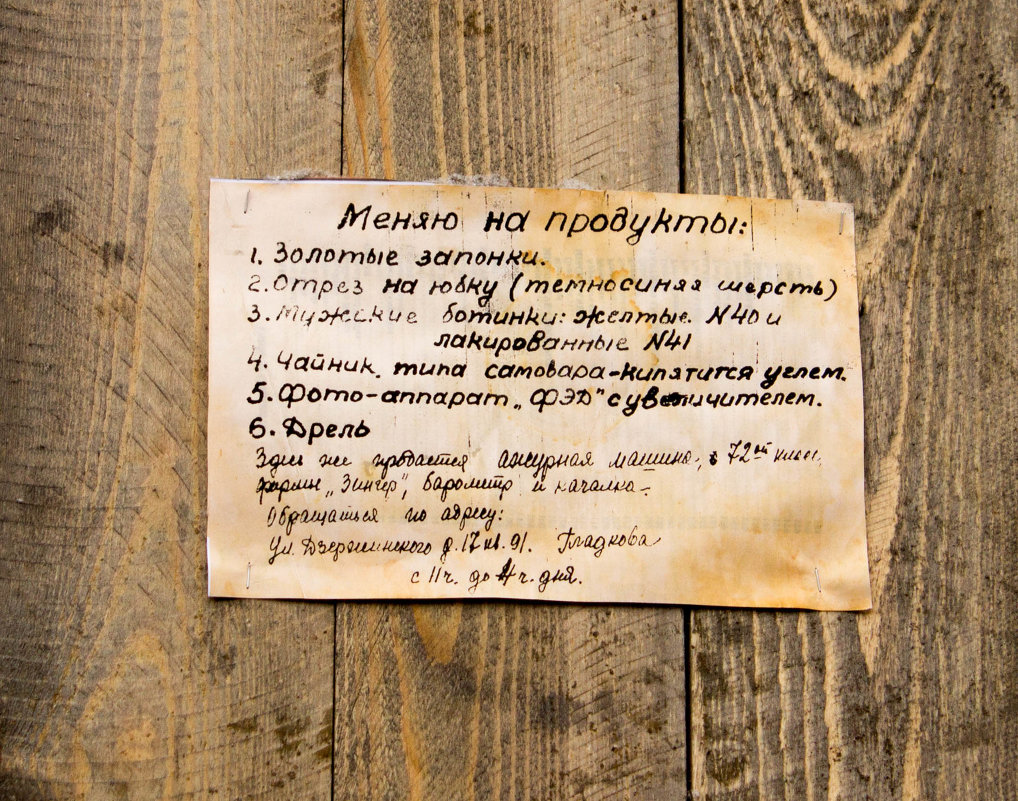 Меняю на продукты:
1. Золотые запонки.
2. Отрез на юбку (темносиняя шерсть)
3. Мужские ботинки: желтые N40 и
лакированные N41
4. Чайник, типа самовара-кипятится углем.
5. Фото-аппарат „ФЭД" с увеличителем.
6. Дрель
Здесь же продается ажурная машина, 72ой класс,
фирмы „Зингер", барометр и качалка-
Обращаться по адресу:
Ул. Дзержинского д. 17 кв. 91. Гладкова
с 11 ч. до 4 ч. дня.